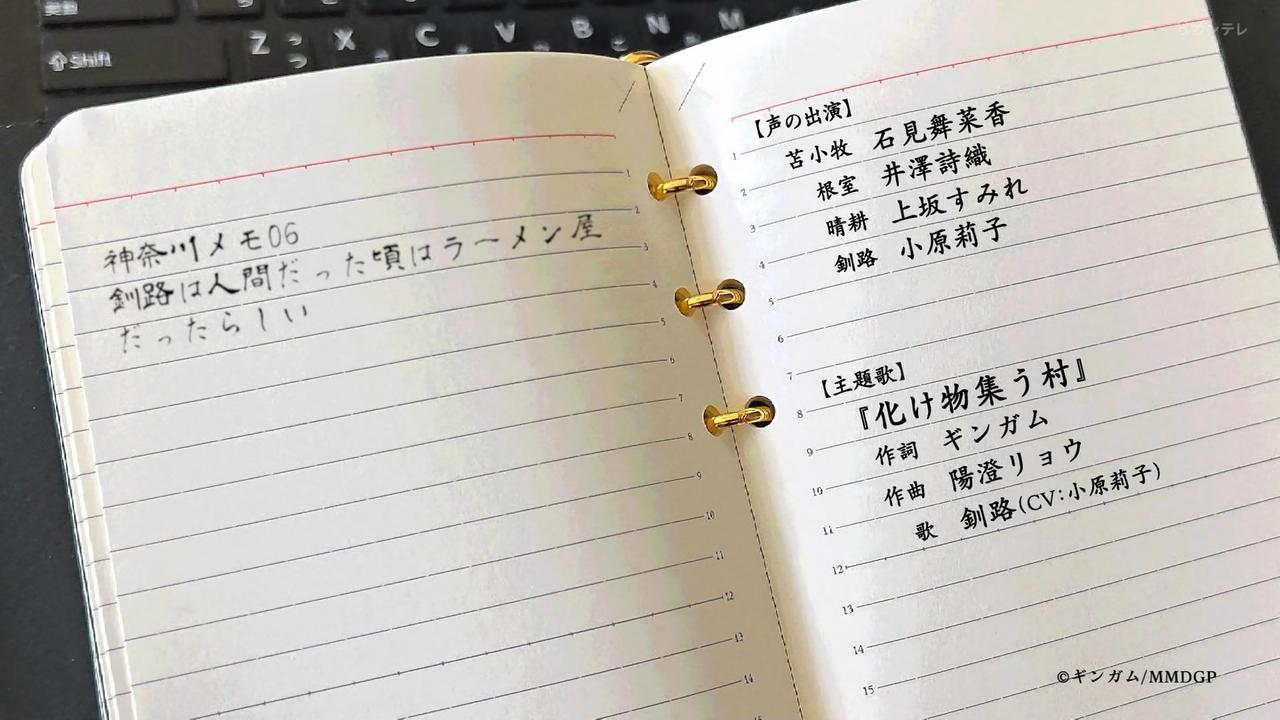 英数
Shift
Z っ
っ
X
C
V
B こ
N
M
神奈川メモ06
釧路は人間だった頃はラーメン屋
だったらしい
1
2
3
4
5
6
7
8
9
10
11
12
13
14
【声の出演】
1 苫小牧 石見舞菜香
2 根室 井澤詩織
3 晴耕 上坂すみれ
4 釧路 小原莉子
5
6
7 【主題歌】
8 『化け物集う村』
9 作詞 ギンガム
10 作曲 陽澄リョウ
11 歌 釧路(CV:小原莉子)
12
13
14
15
©ギンガム/MMDGP